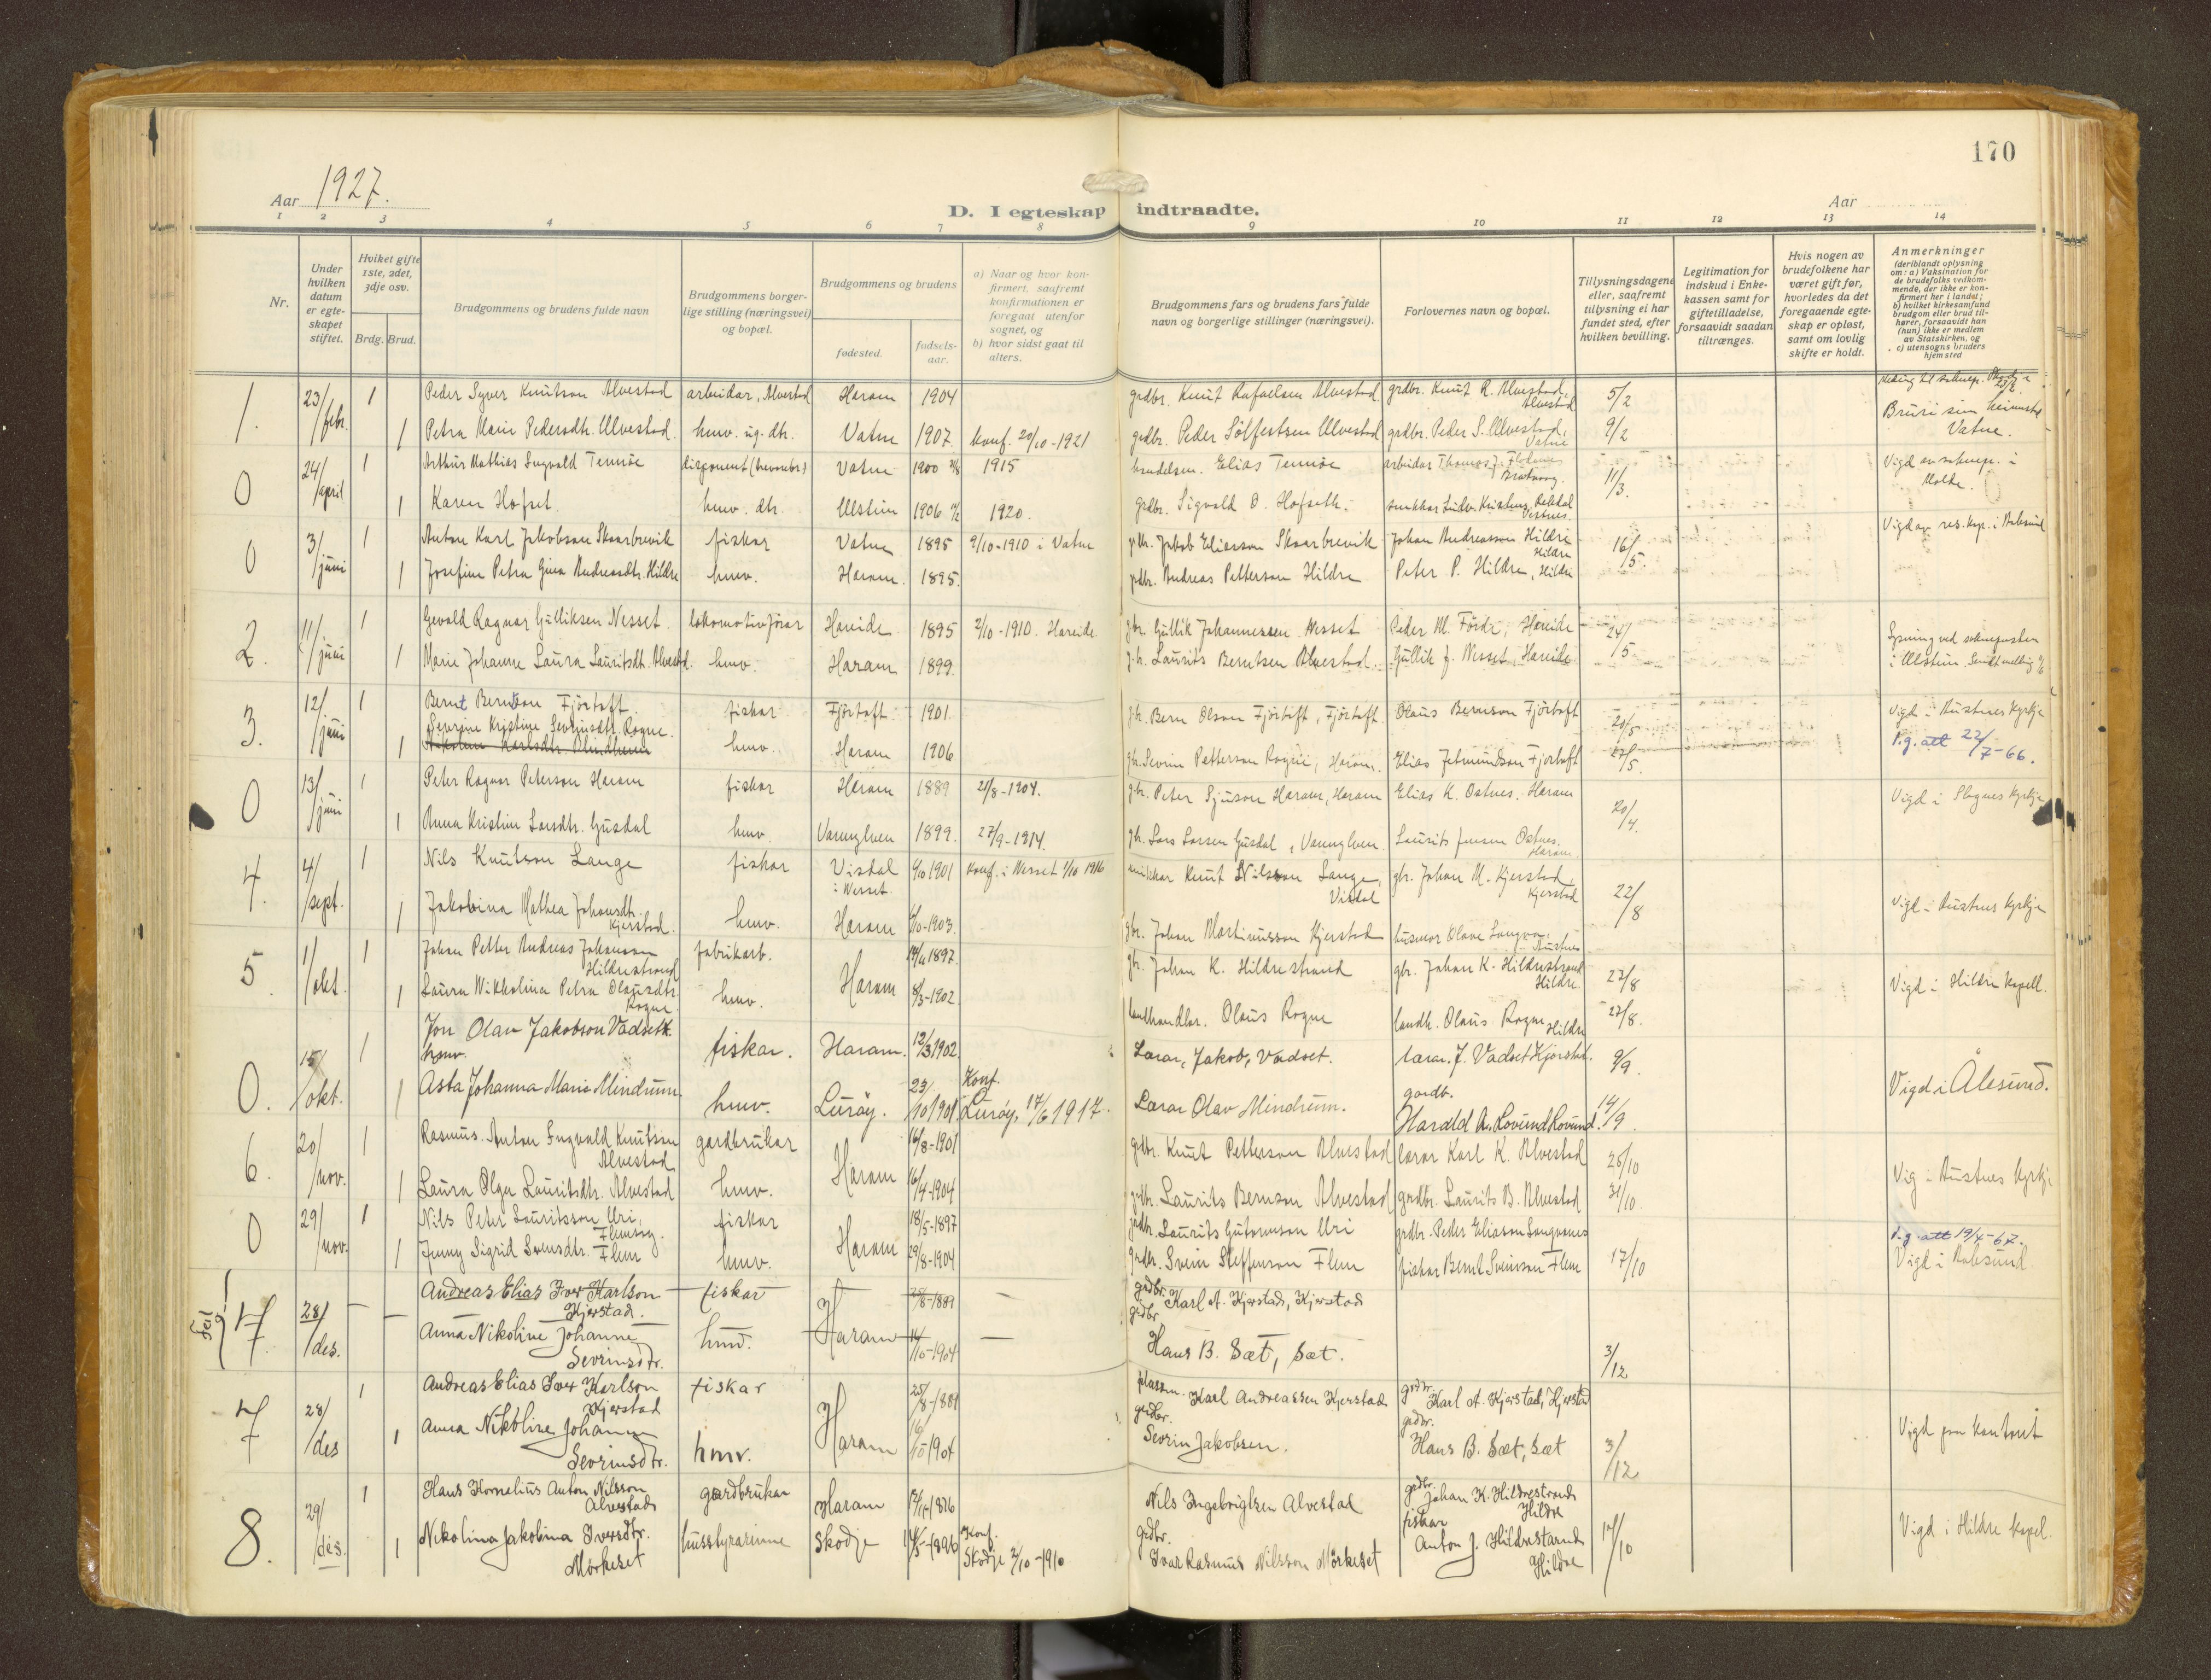 170
Aar 1927.
Aar
D. I egteskap indtraadte.
1 2 3 4 5 6 7 8 9 10 11 12 13 14
Nr.
Under hvilken datum er egteskapet stiftet.
Hviket gifte 1ste, 2det, 3dje osv.
Brdg. Brud.
Brudgommens og brudens fulde navn
Brudgommens borgerlige stilling (næringsvei) og bopæl.
Brudgommens og brudens
fødested.
fødselsaar.
a) Naar og hvor konfirmert, saafremt konfirmationen er foregaat utenfor sognet, og
b) hvor sidst gaat til alters.
Brudgommens fars og brudens fars fulde navn og borgerlige stillinger (næringsvei).
Forlovernes navn og bopæl.
Tillysningsdagene eller, saafremt tillysning ei har fundet sted, efter hvilken bevilling.
Legitimation for indskud i Enkekassen samt for giftetilladelse, forsaavidt saadan tiltrænges.
Hvis nogen av brudefolkene har været gift før, hvorledes da det foregaaende egteskap er opløst, samt om lovlig skifte er holdt.
Anmerkninger (deriblandt oplysning om: a) Vaksination for de brudefolks vedkommende, der ikke er konfirmert her i landet; b) hvilket kirkesamfund brudgom eller brud tilhører, forsaavidt han (hun) ikke er medlem av Statskirken, og c) utensogns bruders hjemsted
1. 23/febr. 1 Peder Syver Knutson Alvestad arbeidar, Alvestad Haram 1904 grdbr. Knut Rafaelsen Alvestad grdbr. Knut R. Alvestad, Alvestad 5/2
1 Petra Marie Pedersdtr. Ulvestad. hmv. ug. dtr. Vatne 1907. konf. 20/10-1921 grdbr. Peder Sölfestsen Ulvestad grdbr. Peder S. Ulvestad, Vatne 9/2 Bruri sin heimstad Vatne.
0 24/april 1 Arthur Mathias Ingvald Tennøe disponent Vatne 1900 1915 Elias Tennøe arbeidar Thomas J. 11/3. Vigd av soknepr. i Molde.
1 Karen Hofset. hmv. dtr. Ulstein 1906 1920. grdbr. Sigvald O. Hofseth. Vestnes
0 3/juni 1 Anton Karl Jakobson Skaarbrevik fiskar Vatne 1895 9/10-1910 i Vatne Jakob Eliasson Skaarbrevik Johan Andreasson Hildre Hildre 16/5. Vigd av res. kap. i Aalesund
1 Josefine Petra Gina Andreasdtr. Hildre hmv. Haram. 1895. grdbr. Andreas Petterson Hildre Peter P. Hildre, Hildre
2. 11/juni 1 Gevald Ragnar Gulliksen Nesset. lokomotivförar Hareide 1895 2/10-1910. Hareide. gbr. Gullik Johannessen Nesset Peder M. Förde, Hareide 24/5
1 Marie Johanne Laura Lauritsdt. Alvestad. hmv. Haram 1899. Laurits Berntsen Alvestad. Gullik J. Nesset, Hareide Lysning ved soknepresten i Ulstein.
3. 12/juni 1 Bernt Berntson Fjörtoft. fiskar Fjörtoft 1901 gbr. Bern Olson Fjörtoft, Fjörtoft. Olaus Bernson Fjörtoft 20/5 Vigd i Austnes kyrkje
Severine Kristine Sevrinsdtr. Rogne.
1 hmv. Haram 1906 gbr. Sevrin Petterson Rogne, Haram. Elias Jetmundson Fjortoft 22/5. l.g. att 22/7-66.
0 13/juni 1 Peter Ragnar Peterson Haram fiskar Haram 1889 21/8-1904. gbr. Peter Sjuson Haram, Haram Elias K. Ostnes. Haram 20/4. Vigd i kyrkje
1 Anna Kristine Larsdtr. Gusdal hmv. Vannylven 1899. 27/9-1914. gbr. Lars Larsen Gusdal, Vannylven. Laurits Jensen Ostnes. Haram.
4. 4/sept. 1 Nils Knutson Lange fiskar Visdal i Nesset 1901 konf. i Nesset 1/10 1916 Knut Nilsson Lange, Visdal gbr. Johan M. Kjerstad, Kjerstad 22/8 Vigd i Austnes kyrkje
1 Jakobina Mathea Johansdtr. Kjerstad. hmv. Haram 1903. gbr. Johan Martinusson Kjerstad husmor Olave Longva, Austnes
5. 1/okt. 1 Johan Petter Andreas Johanson Hildrestrand fabrikarb. Haram 1897. gbr. Johan K. Hildrestrand gbr. Johan K. Hildrestrand Hildre. 27/8 Vigd i Hildre kapell.
1 Laura Nikkoline Petra Olausdtr. Rogne. hmv. 8/3-1902 landhandlar. Olaus Rogne landh. Olaus Rogne Hildre 27/8.
0. 15/okt. 1 Jon Olav Jakobson Vadseth. fiskar. Haram. 12/3 1902. Lærar, Jakob, Vadset. lærar. J. Vadset Kjerstad. 9/9. Vigd i Ålesund.
hmv.
1 Asta Johanna Marie Mindrum hmv. Lurøy. 23/10 1901 Konf. Lurøy. 17/6 1917. Lærar Olav Mindrum. gardb. Harald A. Lovund Lovund. 14/9.
6. 20/nov. 1 Rasmus Anton Ingvald Knutsen Alvestad gardbrukar Haram 16/8-1901 grdbr. Knut Petterson Alvestad lærar Karl K. Alvestad 25/10 Vig i Austnes kyrkje
1 Laura Olga Lauritsdtr. Alvestad hmv. 16/4-1904 grdbr. Laurits Bernson Alvestad grdbr. Laurits B. Alvestad 31/10.
0 29/nov. 1 Nils Peter Lauritsson Uri, Flemsøy. fiskar Haram 18/5-1897 grdbr. Laurits Gutormson Uri grdbr. Peder Eliasson Longvanes l.g. att 19/4-67.
1 Jenny Sigrid Svensdtr. Flem hmv. 29/8-1904 grdbr. Svein Steffenson Flem fiskar Bernt Sveinson Flem 17/10 Vigd i Aalesund.
Feil 7. 28/des. Andreas Elias Iver Karlson Kjerstad. fiskar Haram 25/8-1889 grdbr. Karl A. Kjerstad, Kjerstad
Anna Nikoline Johanne Sevrinsdtr. hmv. 14/10-1904 grdbr. Hans B. Sæt, Sæt. 3/12
7 28/des 1 Andreas Elias Iver Karlson Kjerstad fiskar Haram 25/8-1889 plassm. Karl Andreassen Kjerstad grdbr. Karl A. Kjerstad, Kjerstad
1 Anna Nikoline Johanne Sevrinsdtr. hmv. 1904 grdbr. Sevrin Jakobsen. grdbr. Hans B. Sæt, Sæt 3/12 Vigd paa kontoret
8. 29/des. 1 Hans Kornelius Anton Nilsson Alvestad gardbrukar Haram 1876 Nils Ingebrigtsen Alvestad grdbr. Johan K. Hildrestrand Hildre
1 Nikolina Jakobina Iversdtr. Mørkeset husstyrarinne Skodje 1896 Konf. Skodje 2/10-1910 grdbr. Ivar Rasmus Nilsson Mørkeset fiskar Anton J. Hildrestrand Hildre 17/10 Vigd i Hildre kapel.